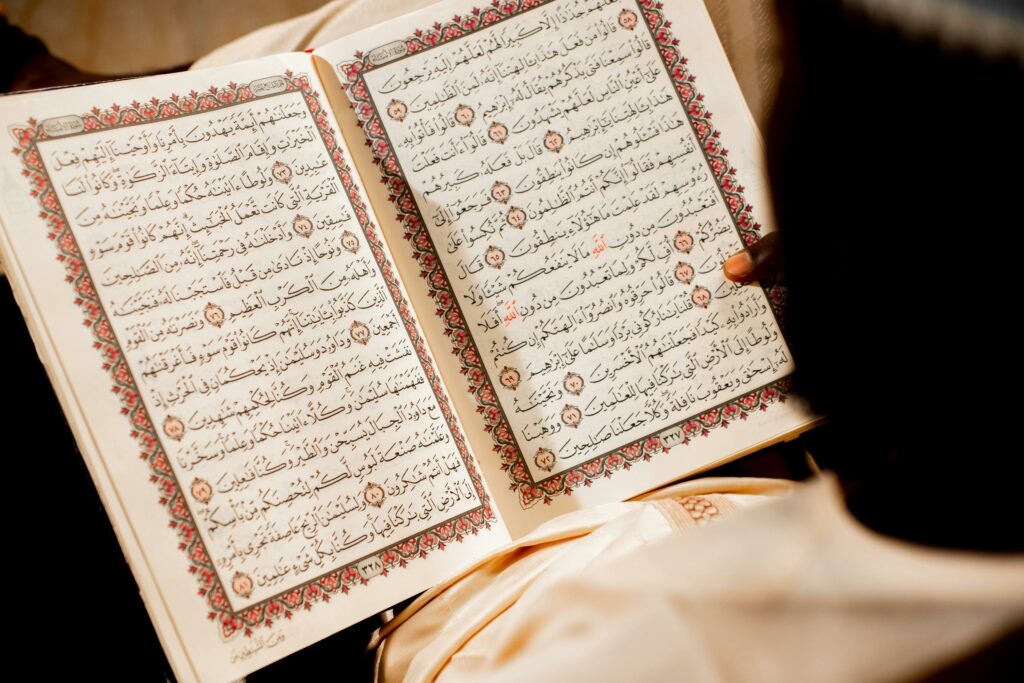 فَجَعَلَهُمْ جُذَٰذًا إِلَّا كَبِيرًا لَّهُمْ لَعَلَّهُمْ إِلَيْهِ يَرْجِعُونَ
٥٨ قَالُوا۟ مَن فَعَلَ هَٰذَا بِـَٔالِهَتِنَآ إِنَّهُۥ لَمِنَ ٱلظَّٰلِمِينَ
٥٩ قَالُوا۟ سَمِعْنَا فَتًى يَذْكُرُهُمْ يُقَالُ لَهُۥٓ إِبْرَٰهِيمُ ٦٠ قَالُوا۟ فَأْتُوا۟ بِهِۦ
عَلَىٰٓ أَعْيُنِ ٱلنَّاسِ لَعَلَّهُمْ يَشْهَدُونَ ٦١ قَالُوٓا۟ ءَأَنتَ فَعَلْتَ
هَٰذَا بِـَٔالِهَتِنَا يَٰٓإِبْرَٰهِيمُ ٦٢ قَالَ بَلْ فَعَلَهُۥ كَبِيرُهُمْ
هَٰذَا فَسْـَٔلُوهُمْ إِن كَانُوا۟ يَنطِقُونَ ٦٣ فَرَجَعُوٓا۟ إِلَىٰٓ
أَنفُسِهِمْ فَقَالُوٓا۟ إِنَّكُمْ أَنتُمُ ٱلظَّٰلِمُونَ ٦٤ ثُمَّ نُكِسُوا۟ عَلَىٰ
رُءُوسِهِمْ لَقَدْ عَلِمْتَ مَا هَٰٓؤُلَآءِ يَنطِقُونَ ٦٥ قَالَ
أَفَتَعْبُدُونَ مِن دُونِ ٱللَّهِ مَا لَا يَنفَعُكُمْ شَيْـًٔا وَلَا
يَضُرُّكُمْ ٦٦ أُفٍّ لَّكُمْ وَلِمَا تَعْبُدُونَ مِن دُونِ ٱللَّهِ أَفَلَا
٦٧ قَالُوا۟ حَرِّقُوهُ وَٱنصُرُوٓا۟ ءَالِهَتَكُمْ إِن كُنتُمْ
٦٨ قُلْنَا يَٰنَارُ كُونِى بَرْدًا وَسَلَٰمًا عَلَىٰٓ إِبْرَٰهِيمَ
٦٩ وَأَرَادُوا۟ بِهِۦ كَيْدًا فَجَعَلْنَٰهُمُ ٱلْأَخْسَرِينَ ٧٠ وَنَجَّيْنَٰهُ
وَلُوطًا إِلَى ٱلْأَرْضِ ٱلَّتِى بَٰرَكْنَا فِيهَا لِلْعَٰلَمِينَ ٧١ وَوَهَبْنَا
لَهُۥٓ إِسْحَٰقَ وَيَعْقُوبَ نَافِلَةً وَكُلًّا جَعَلْنَا صَٰلِحِينَ ٧٢
٣٢٧
وَجَعَلْنَٰهُمْ أَئِمَّةً يَهْدُونَ بِأَمْرِنَا وَأَوْحَيْنَآ إِلَيْهِمْ فِعْلَ
ٱلْخَيْرَٰتِ وَإِقَامَ ٱلصَّلَوٰةِ وَإِيتَآءَ ٱلزَّكَوٰةِ وَكَانُوا۟ لَنَا
عَٰبِدِينَ ٧٣ وَلُوطًا ءَاتَيْنَٰهُ حُكْمًا وَعِلْمًا وَنَجَّيْنَٰهُ مِنَ
ٱلْقَرْيَةِ ٱلَّتِى كَانَت تَّعْمَلُ ٱلْخَبَٰٓئِثَ إِنَّهُمْ كَانُوا۟ قَوْمَ سَوْءٍ
فَٰسِقِينَ ٧٤ وَأَدْخَلْنَٰهُ فِى رَحْمَتِنَآ إِنَّهُۥ مِنَ ٱلصَّٰلِحِينَ
٧٥ وَنُوحًا إِذْ نَادَىٰ مِن قَبْلُ فَٱسْتَجَبْنَا لَهُۥ فَنَجَّيْنَٰهُ
وَأَهْلَهُۥ مِنَ ٱلْكَرْبِ ٱلْعَظِيمِ ٧٦ وَنَصَرْنَٰهُ مِنَ ٱلْقَوْمِ
ٱلَّذِينَ كَذَّبُوا۟ بِـَٔايَٰتِنَآ إِنَّهُمْ كَانُوا۟ قَوْمَ سَوْءٍ فَأَغْرَقْنَٰهُمْ
أَجْمَعِينَ ٧٧ وَدَاوُۥدَ وَسُلَيْمَٰنَ إِذْ يَحْكُمَانِ فِى ٱلْحَرْثِ إِذْ
نَفَشَتْ فِيهِ غَنَمُ ٱلْقَوْمِ وَكُنَّا لِحُكْمِهِمْ شَٰهِدِينَ ٧٨
فَفَهَّمْنَٰهَا سُلَيْمَٰنَ وَكُلًّا ءَاتَيْنَا حُكْمًا وَعِلْمًا وَسَخَّرْنَا
مَعَ دَاوُۥدَ ٱلْجِبَالَ يُسَبِّحْنَ وَٱلطَّيْرَ وَكُنَّا فَٰعِلِينَ ٧٩
وَعَلَّمْنَٰهُ صَنْعَةَ لَبُوسٍ لَّكُمْ لِتُحْصِنَكُم مِّنۢ بَأْسِكُمْ
فَهَلْ أَنتُمْ شَٰكِرُونَ ٨٠ وَلِسُلَيْمَٰنَ ٱلرِّيحَ عَاصِفَةً تَجْرِى بِأَمْرِهِۦٓ
إِلَى ٱلْأَرْضِ ٱلَّتِى بَٰرَكْنَا فِيهَا وَكُنَّا بِكُلِّ شَىْءٍ عَٰلِمِينَ ٨١
٣٢٨
وَمِنَ ٱلشَّيَٰطِينِ